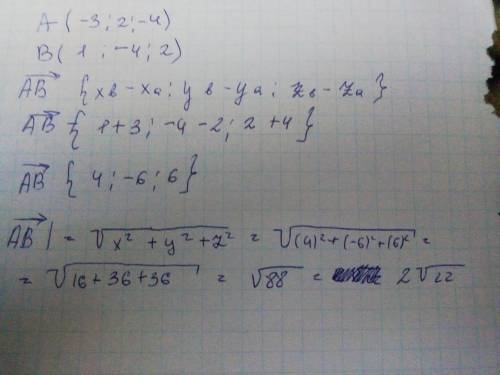 A (-3; 2; -4)
B( 1; -4; 2)
AB {xв - xa; yв - ya; zв - za}
AB { 1+3; -4-2; 2+4}
AB { 4; -6; 6}
AB| = √x² + y² + z² = √(4)²+(-6)²+(6)² =
= √16+36+36 = √88 = 2√22